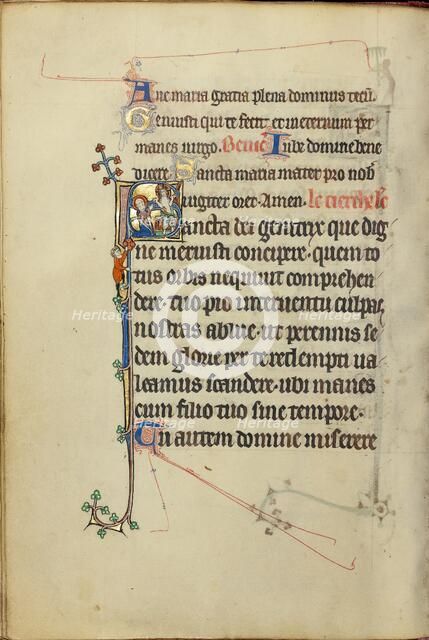 Aue maria gratia plena dominus tecū.
Genuisti qui te fecit. et in eternum per
manes uirgo. Benic Iube domine bene
dicere. Sancta maria mater pro nob
iugiter oret. Amen. le tierche le
Sancta dei genitrix que dig
ne meruisti concipere. quem to
tus orbis nequiuit comprehen
dere. tuo pio interuentu culpas
nostras ablue. ut perennis se
dem glorie per te redempti ua
leamus scandere. ubi manes
cum filio tuo sine tempore.
Tu autem domine miserere
Heritage
Heritage
Heritage
Heritage
Heritage
Heritage